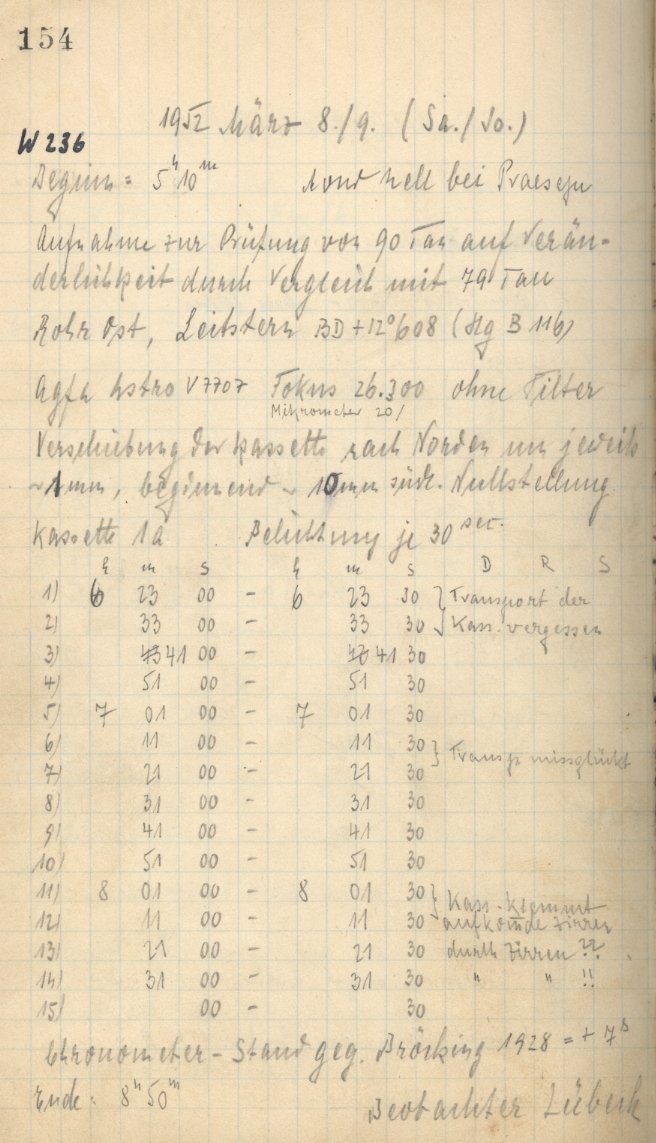 154
1952 März 8./9. (Sa./So.)
W 236
Beginn = 5h 10m Mond hell bei Praesepe
Aufnahme zur Prüfung von 90 Tau auf Verän-
derlichkeit durch Vergleich mit 79 Tau
Rohr Ost, Leitstern BD +12°608 (Hg B 116)
Agfa Astro V7707 Fokus 26.300 ohne Filter
Mikrometer 20/
Verschiebung der Kassette nach Norden um jeweils
~1mm, beginnend ~ 10mm südl. Nullstellung
Kassette 1a Belichtung je 30 sec.
h m s h m s D R S
1) 6 23 00 - 6 23 30 } Transport der
2) 33 00 - 33 30 Kass. vergessen
3) 43 41 00 - 43 41 30
4) 51 00 - 51 30
5) 7 01 00 - 7 01 30
6) 11 00 - 11 30 } Transp. missglückt
7) 21 00 - 21 30
8) 31 00 - 31 30
9) 41 00 - 41 30
10) 51 00 - 51 30
11) 8 01 00 - 8 01 30 } Kass. klemmt
12) 11 00 - 11 30 aufkomde Zirren
13) 21 00 - 21 30 durch Zirren ??
14) 31 00 - 31 30 " " !!
15) 00 - 30
Chronometer-Stand geg. Bröcking 1928 = + 7s
Ende: 8h 50m Beobachter Lübeck